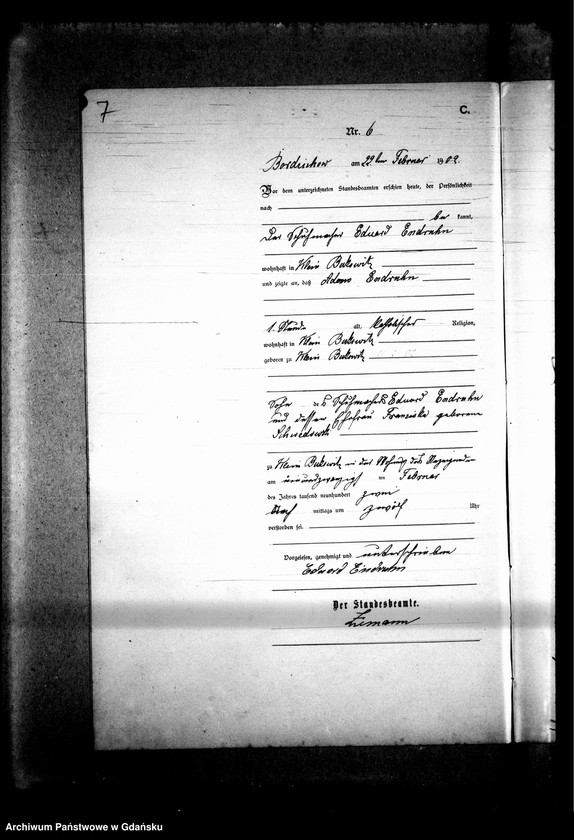 7
C.
Nr. 6
am 22ten Februar 1902.
Vor dem unterzeichneten Standesbeamten erschien heute, der Persönlichkeit
nach
be kannt,
Der Schuhmacher Eduard Endruhn
wohnhaft in Klein Bukowitz
und zeigte an, daß Adam Endruhn
1. Stunde alt, katholischer Religion,
wohnhaft in Klein Bukowitz
geboren zu Klein Bukowitz
Sohn des Schuhmachers Eduard Endruhn
und dessen Ehefrau Franziska geborene
zu Klein Bukowitz in der Wohnung des Anzeigenden
am Februar
des Jahres tausend neunhundert zwei
Nach mittags um zwölf Uhr
verstorben sei.
Vorgelesen, genehmigt und unterschrieben
Eduard Endruhn
Der Standesbeamte.
Ziemann
Archiwum Państwowe w Gdańsku